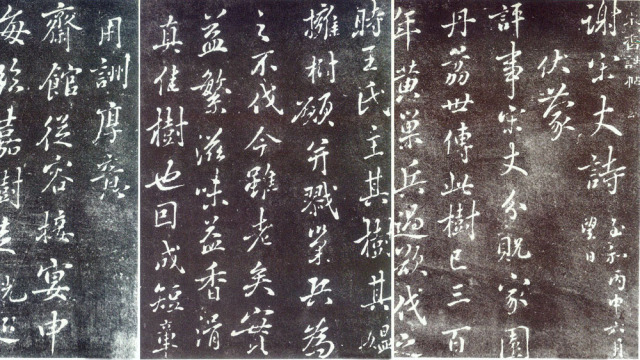 謝宋丈詩 至和丙申六月
望日
伏蒙
評事宋丈分貺家園
丹荔世傳此樹已三百
年黄巢兵過欲伐之
時王氏主其樹其媪
擁樹願并戮巢兵為
之不伐今雖老矣實
益繁滋味益香滑
真佳樹也因成短章
用詶厚意
齋館從容接宴申
每 嘉樹 光